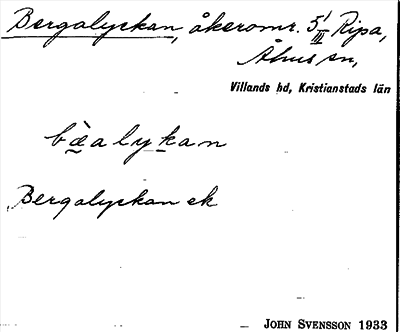 Bergalyckan, åkeromr. 5/III Ripa,
Åhus sn,
Villands hd, Kristianstads län
bæalykan
Bergalyckan ek
JOHN SVENSSON 1933